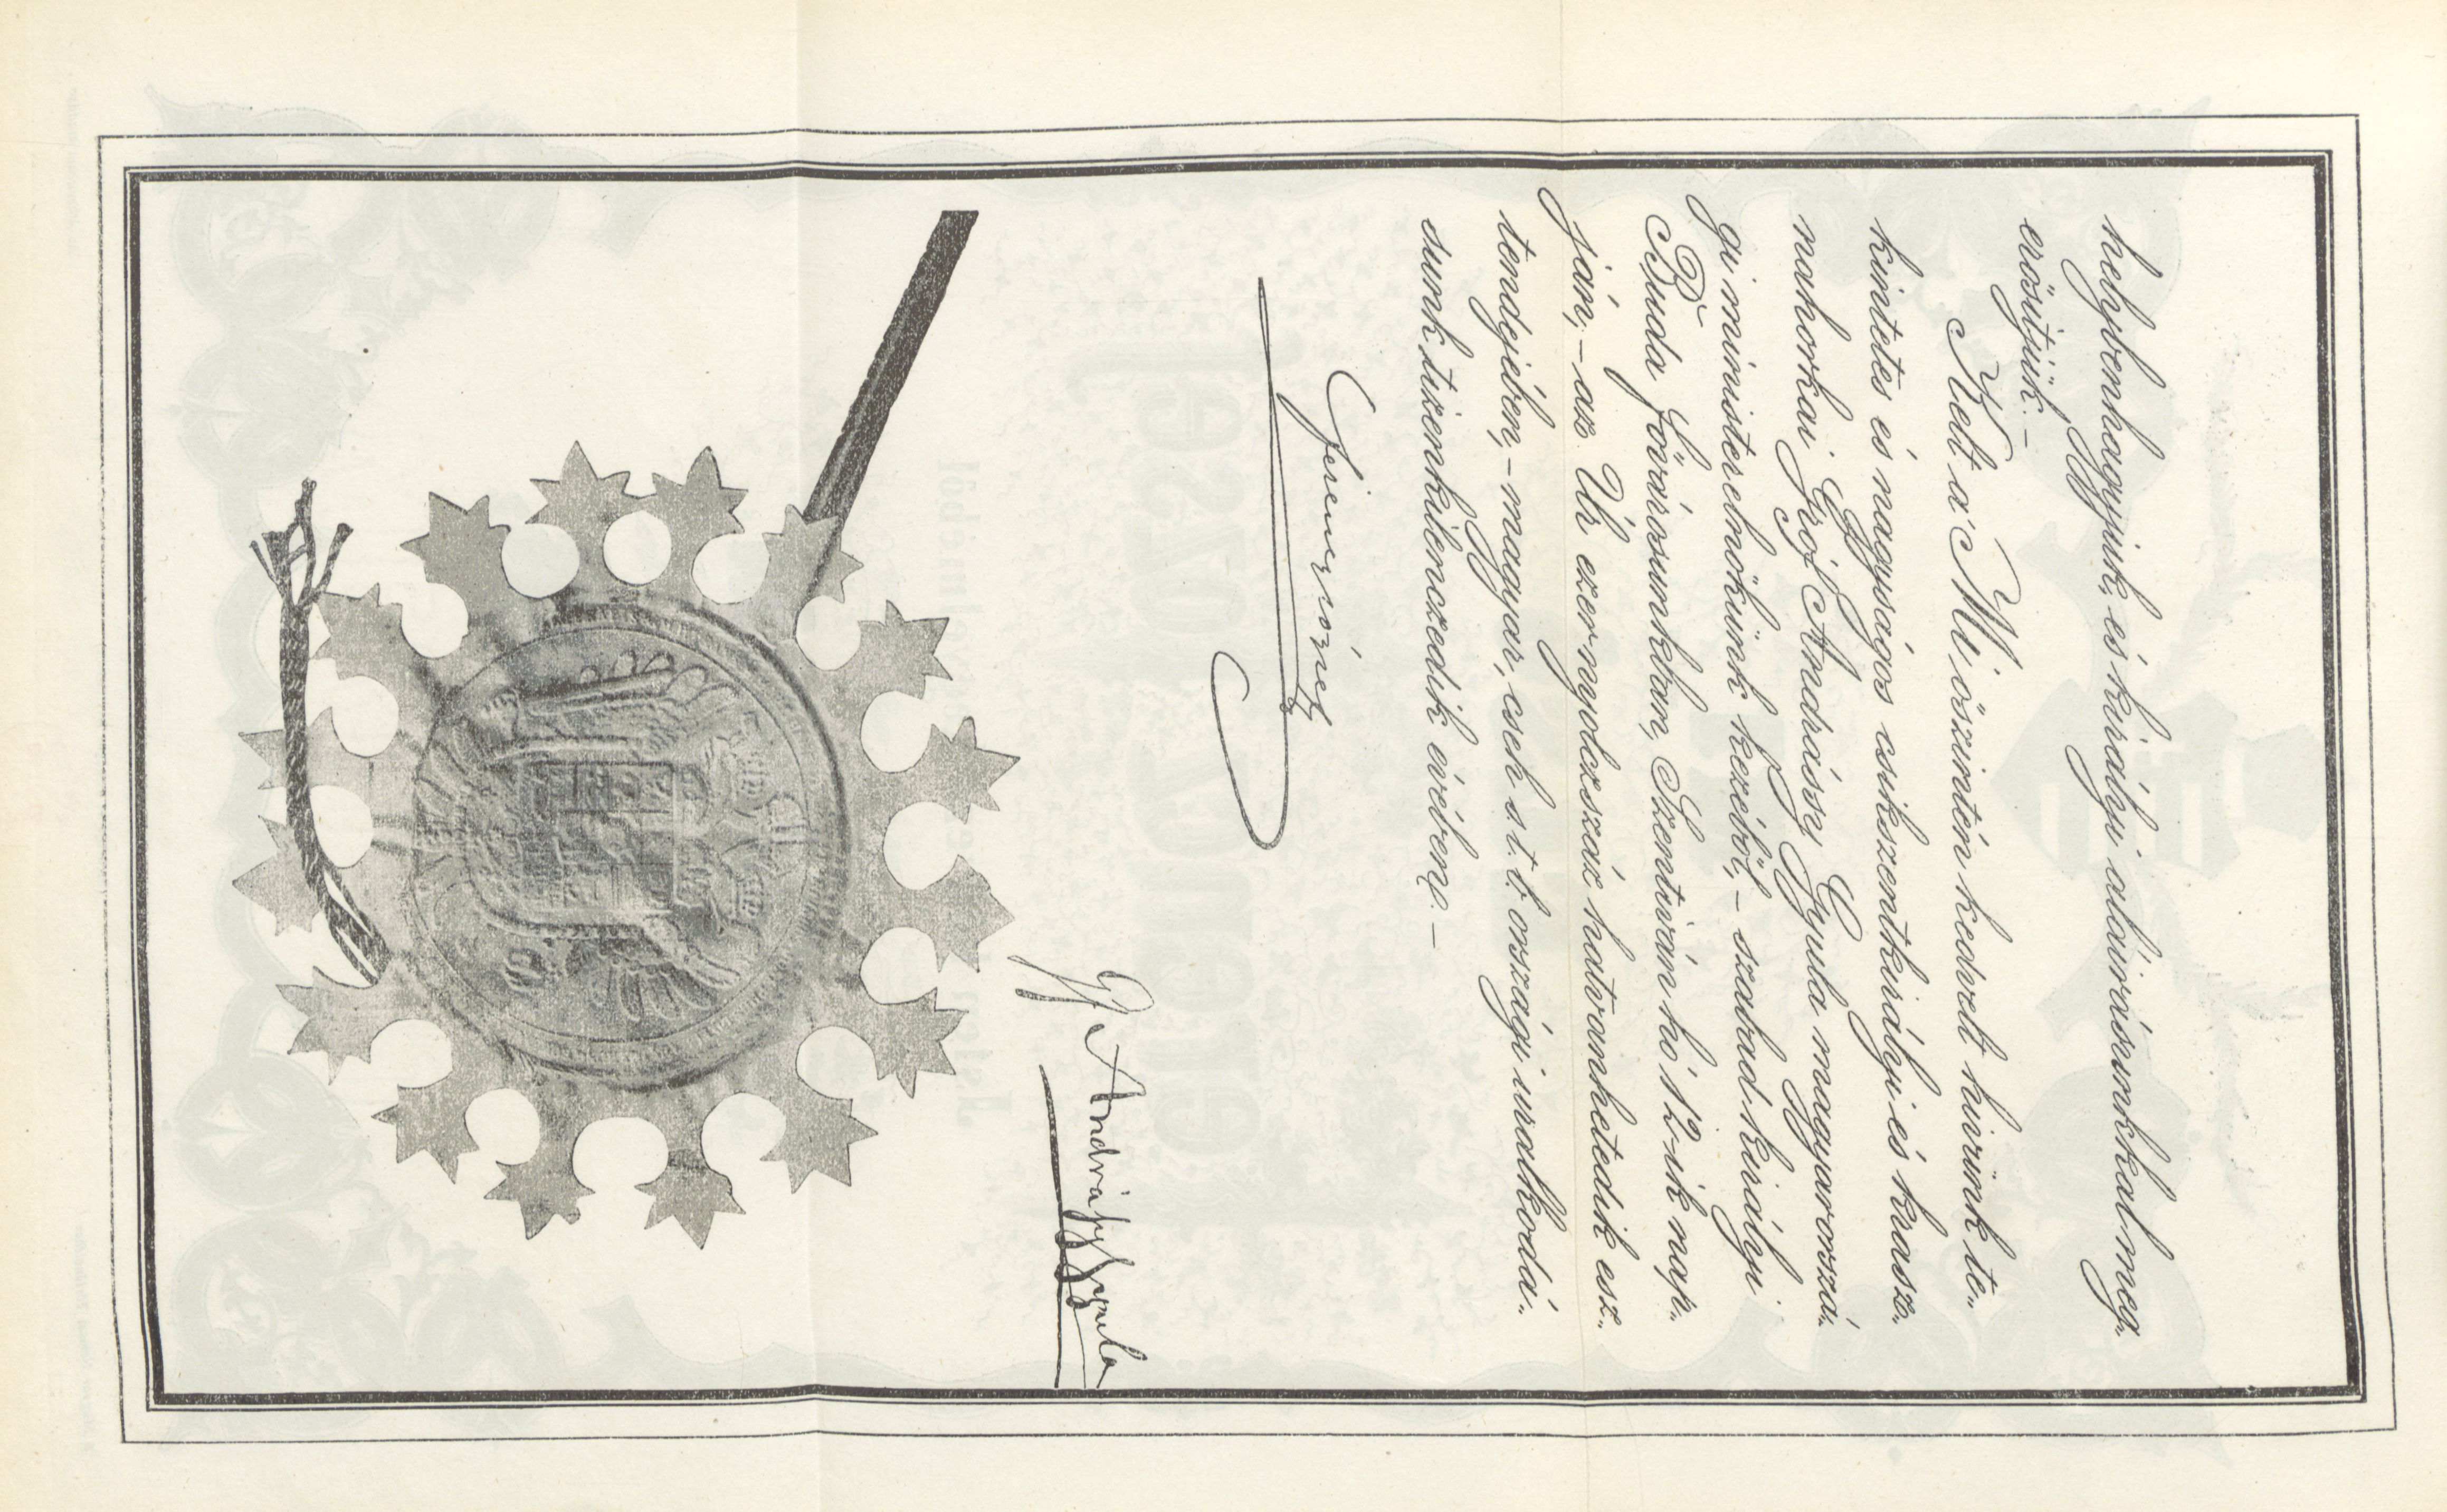 helybenhagyjuk, és királyi aláirásunkkal meg-
erősitjük. –
Kelt a' Mi őszintén kedvelt hivünk te-
kintetes és nagyságos csikszentkirályi és krasz-
nahorkai Gróf Andrássy Gyula magyarorszá-
gi ministerelnökünk kezéből, – szabad királyi
Buda fővárosunkban, Szentiván hó 12-ik nap-
ján, – az Úr ezernyolczszáz hatvanhetedik esz-
tendejében, – magyar, cseh s t. b. országi uralkodá-
sunk tizenkilenczedik évében. –
Ferencz József
Gf Andrássy Gyula